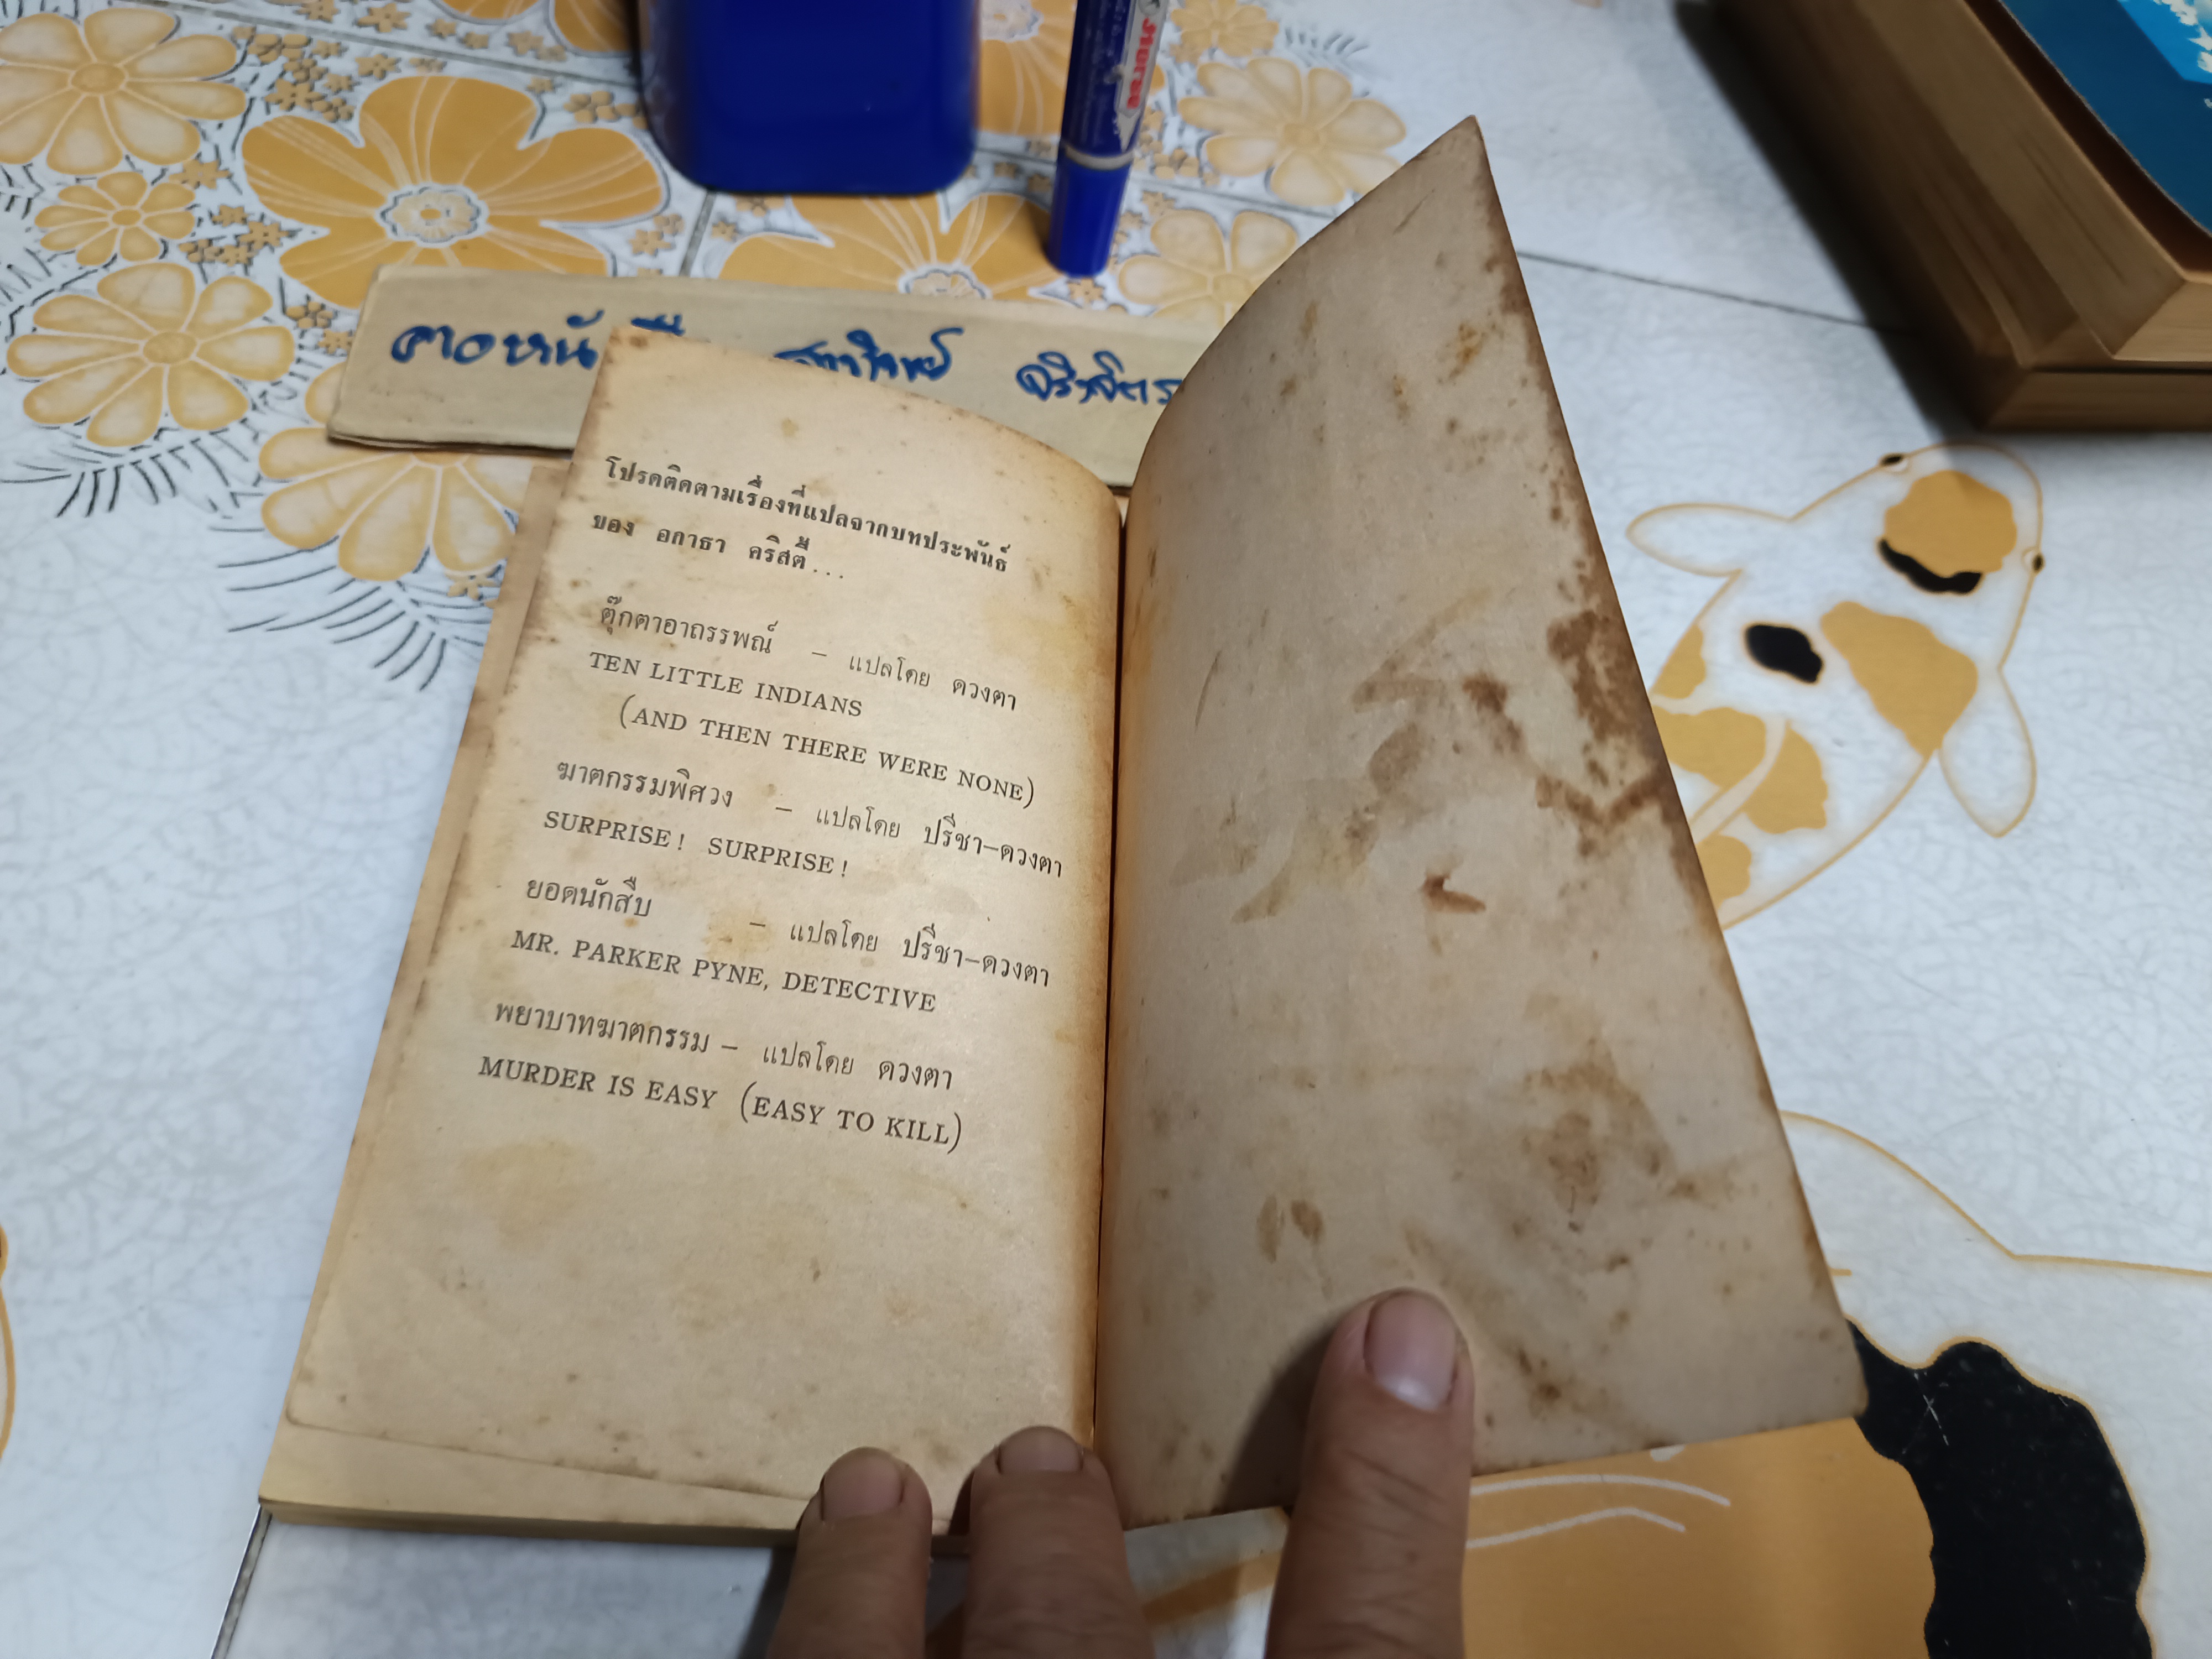 โปรดติดตามเรื่องที่แปลจากบทประพันธ์
ของ อกาธา คริสตี้...
ตุ๊กตาอาถรรพณ์ – แปลโดย ดวงตา
TEN LITTLE INDIANS
(AND THEN THERE WERE NONE)
ฆาตกรรมพิศวง – แปลโดย ปรีชา–ดวงตา
SURPRISE! SURPRISE!
ยอดนักสืบ – แปลโดย ปรีชา–ดวงตา
MR. PARKER PYNE, DETECTIVE
พยาบาทฆาตกรรม – แปลโดย ดวงตา
MURDER IS EASY (EASY TO KILL)